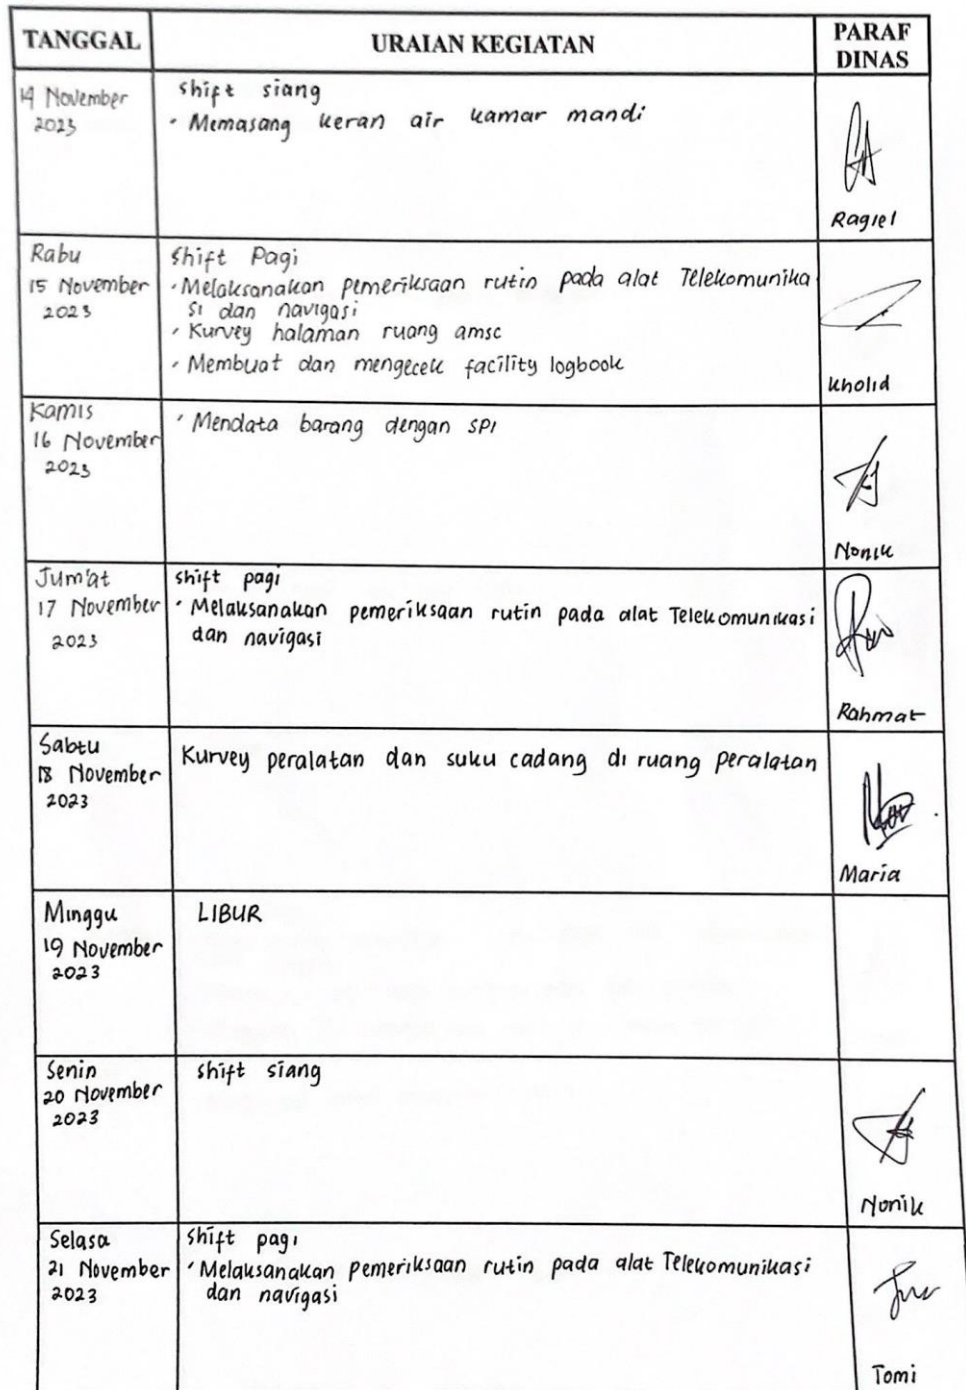 TANGGAL
URAIAN KEGIATAN
PARAF
DINAS
14 November
2023
Shift siang
· Memasang keran air kamar mandi
Ragiel
Rabu
15 November
2023
Shift Pagi
· Melaksanakan pemeriksaan rutin pada alat Telekomunika
si dan navigasi
· Kurvey halaman ruang amsc
· Membuat dan mengecek facility logbook
Kholid
Kamis
16 November
2023
· Mendata barang dengan SPI
Nonik
Jum'at
17 November
2023
Shift pagi
· Melaksanakan pemeriksaan rutin pada alat Telekomunikasi
dan navigasi
Rahmat
Sabtu
18 November
2023
Kurvey peralatan dan suku cadang di ruang peralatan
Maria
Minggu
19 November
2023
LIBUR
Senin
20 November
2023
Shift siang
Nonik
Selasa
21 November
2023
Shift pagi
· Melaksanakan pemeriksaan rutin pada alat Telekomunikasi
dan navigasi
Tomi